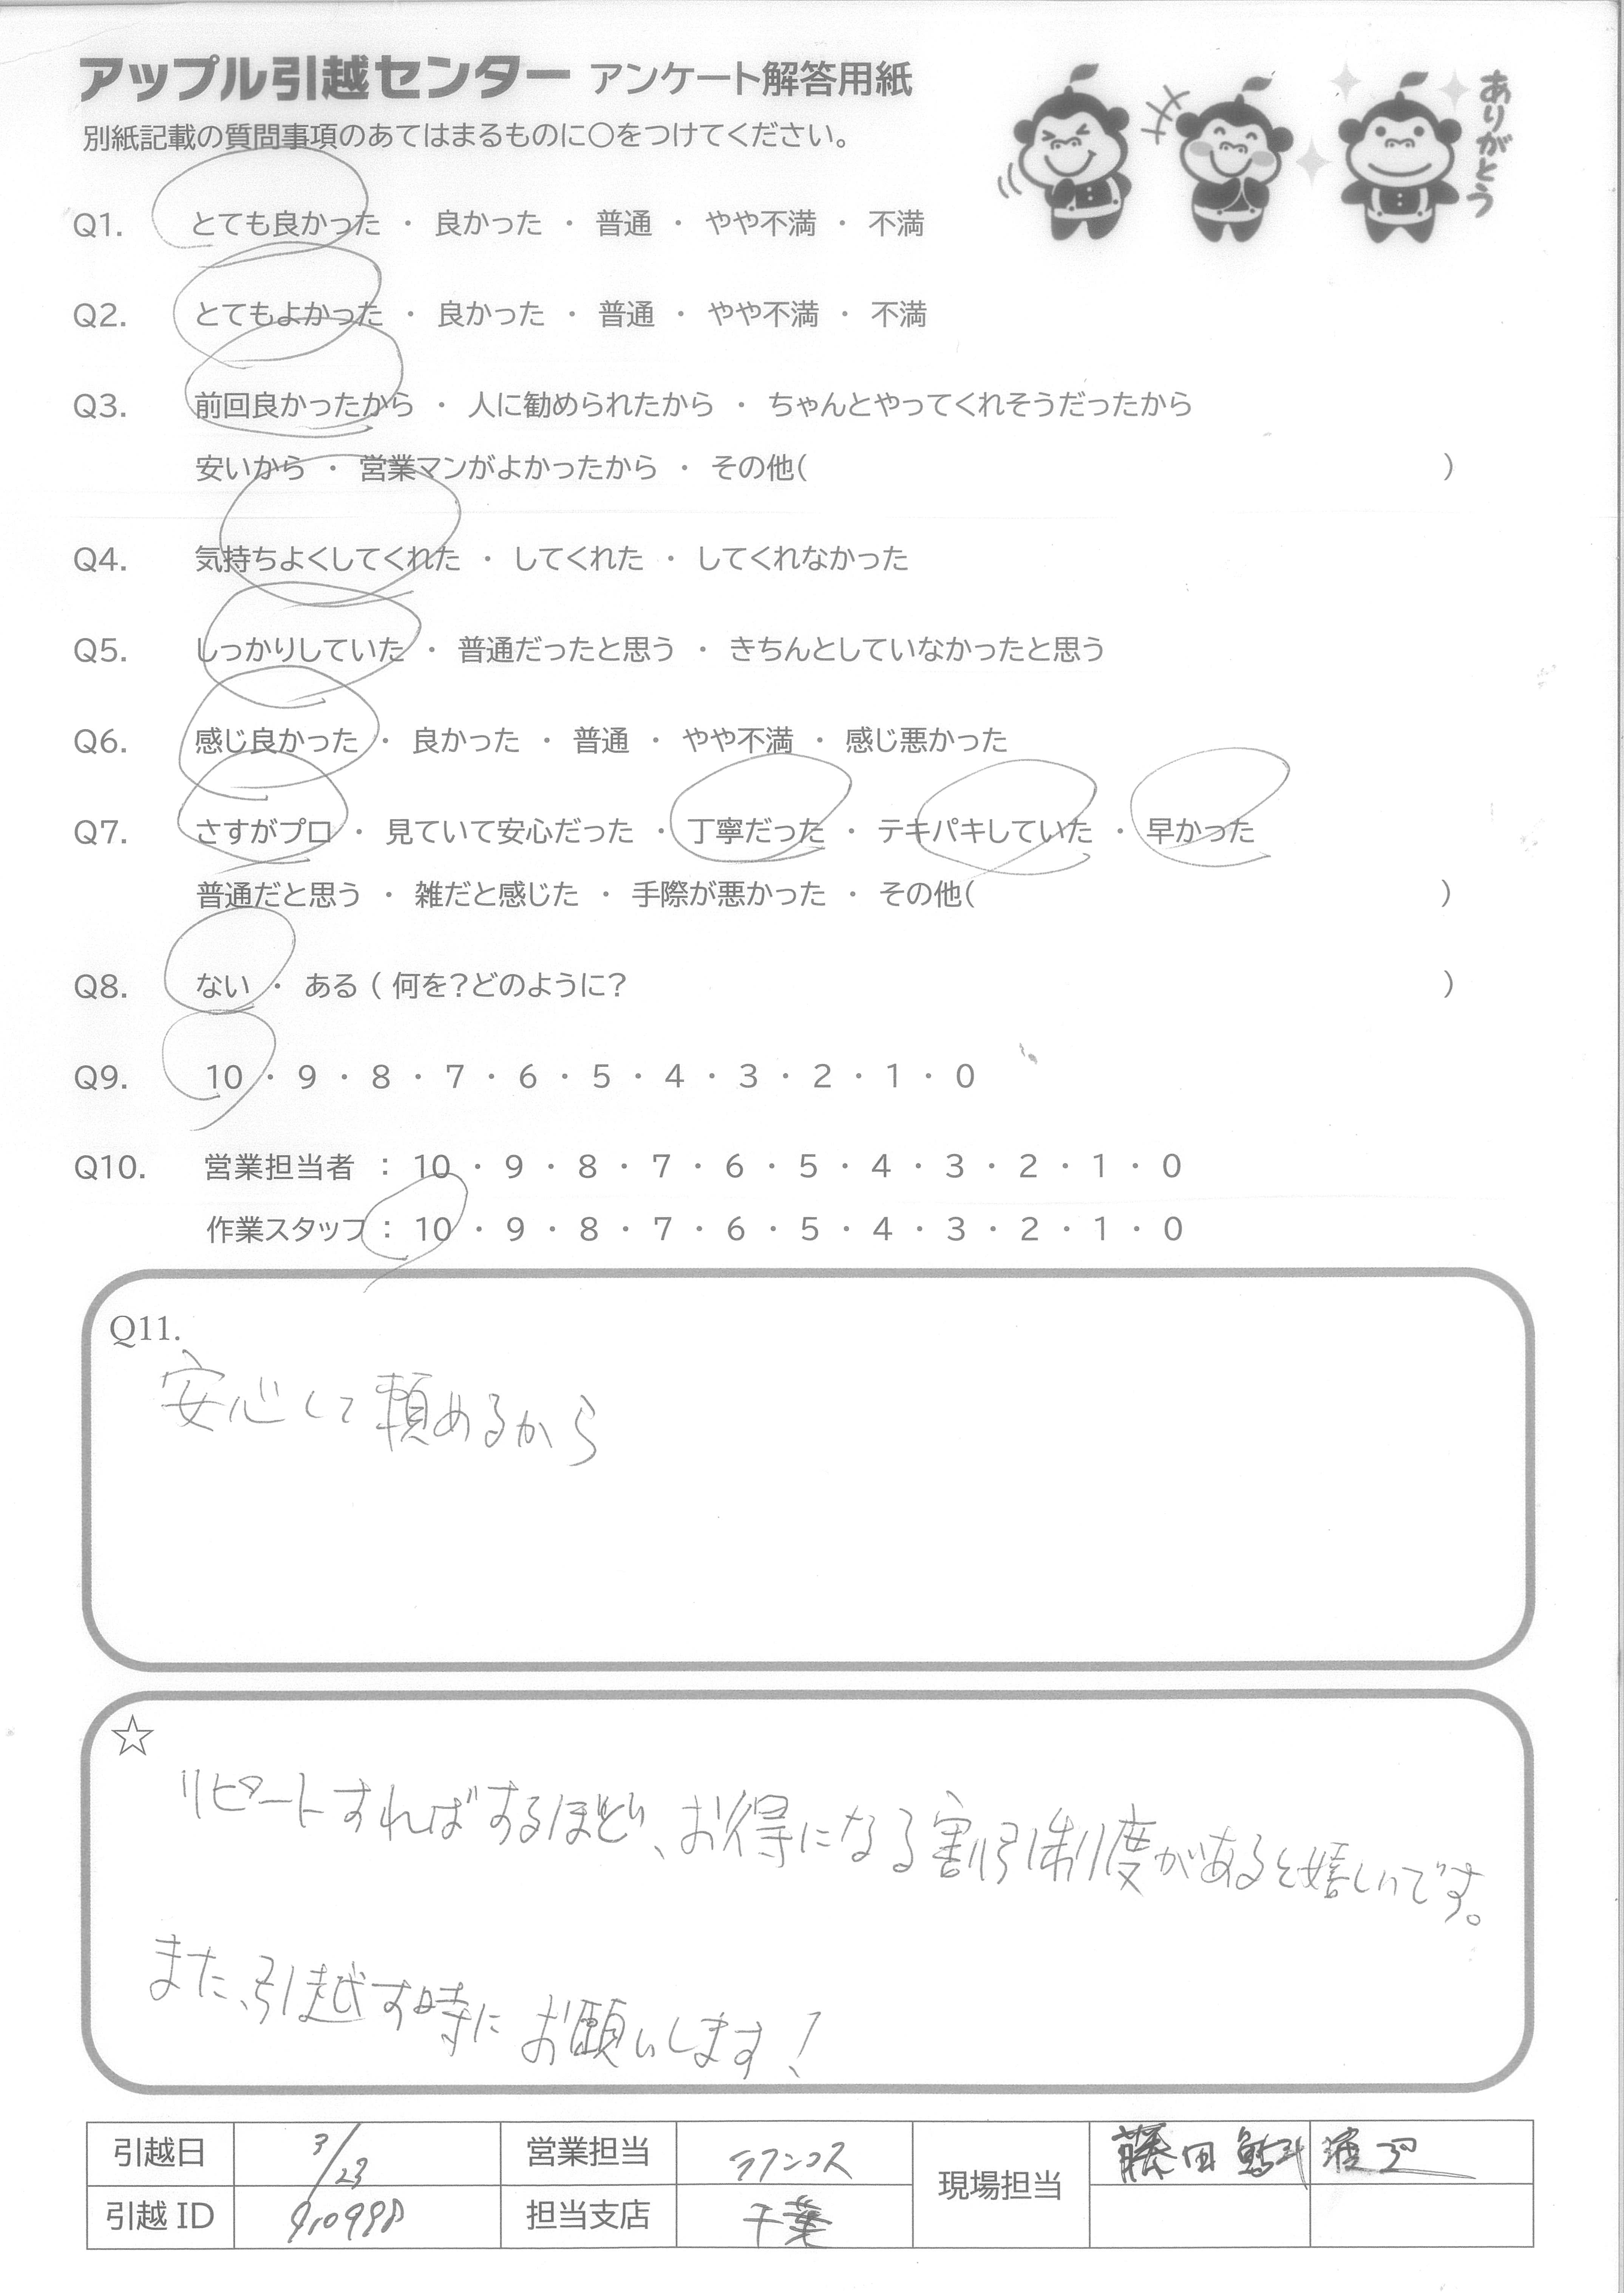 アップル引越センター アンケート解答用紙
ありがとう
別紙記載の質問事項のあてはまるものに〇をつけてください。
Q1. とても良かった ・ 良かった ・ 普通 ・ やや不満 ・ 不満
Q2. とてもよかった ・ 良かった ・ 普通 ・ やや不満 ・ 不満
Q3. 前回良かったから ・ 人に勧められたから ・ ちゃんとやってくれそうだったから
安いから ・ 営業マンがよかったから ・ その他( )
Q4. 気持ちよくしてくれた ・ してくれた ・ してくれなかった
Q5. しっかりしていた ・ 普通だったと思う ・ きちんとしていなかったと思う
Q6. 感じ良かった ・ 良かった ・ 普通 ・ やや不満 ・ 感じ悪かった
Q7. さすがプロ ・ 見ていて安心だった ・ 丁寧だった ・ テキパキしていた ・ 早かった
普通だと思う ・ 雑だと感じた ・ 手際が悪かった ・ その他( )
Q8. ない ・ ある ( 何を?どのように? )
Q9. 10 ・ 9 ・ 8 ・ 7 ・ 6 ・ 5 ・ 4 ・ 3 ・ 2 ・ 1 ・ 0
Q10. 営業担当者 : 10 ・ 9 ・ 8 ・ 7 ・ 6 ・ 5 ・ 4 ・ 3 ・ 2 ・ 1 ・ 0
作業スタッフ : 10 ・ 9 ・ 8 ・ 7 ・ 6 ・ 5 ・ 4 ・ 3 ・ 2 ・ 1 ・ 0
Q11.
安心して頼めるから
☆
リピートすればするほど、お得になる割引制度があると嬉しいです。
また、引越す時にお願いします!
引越日 3/23 営業担当 ラフンコス 現場担当 藤田 渡辺
引越 ID 910998 担当支店 千葉